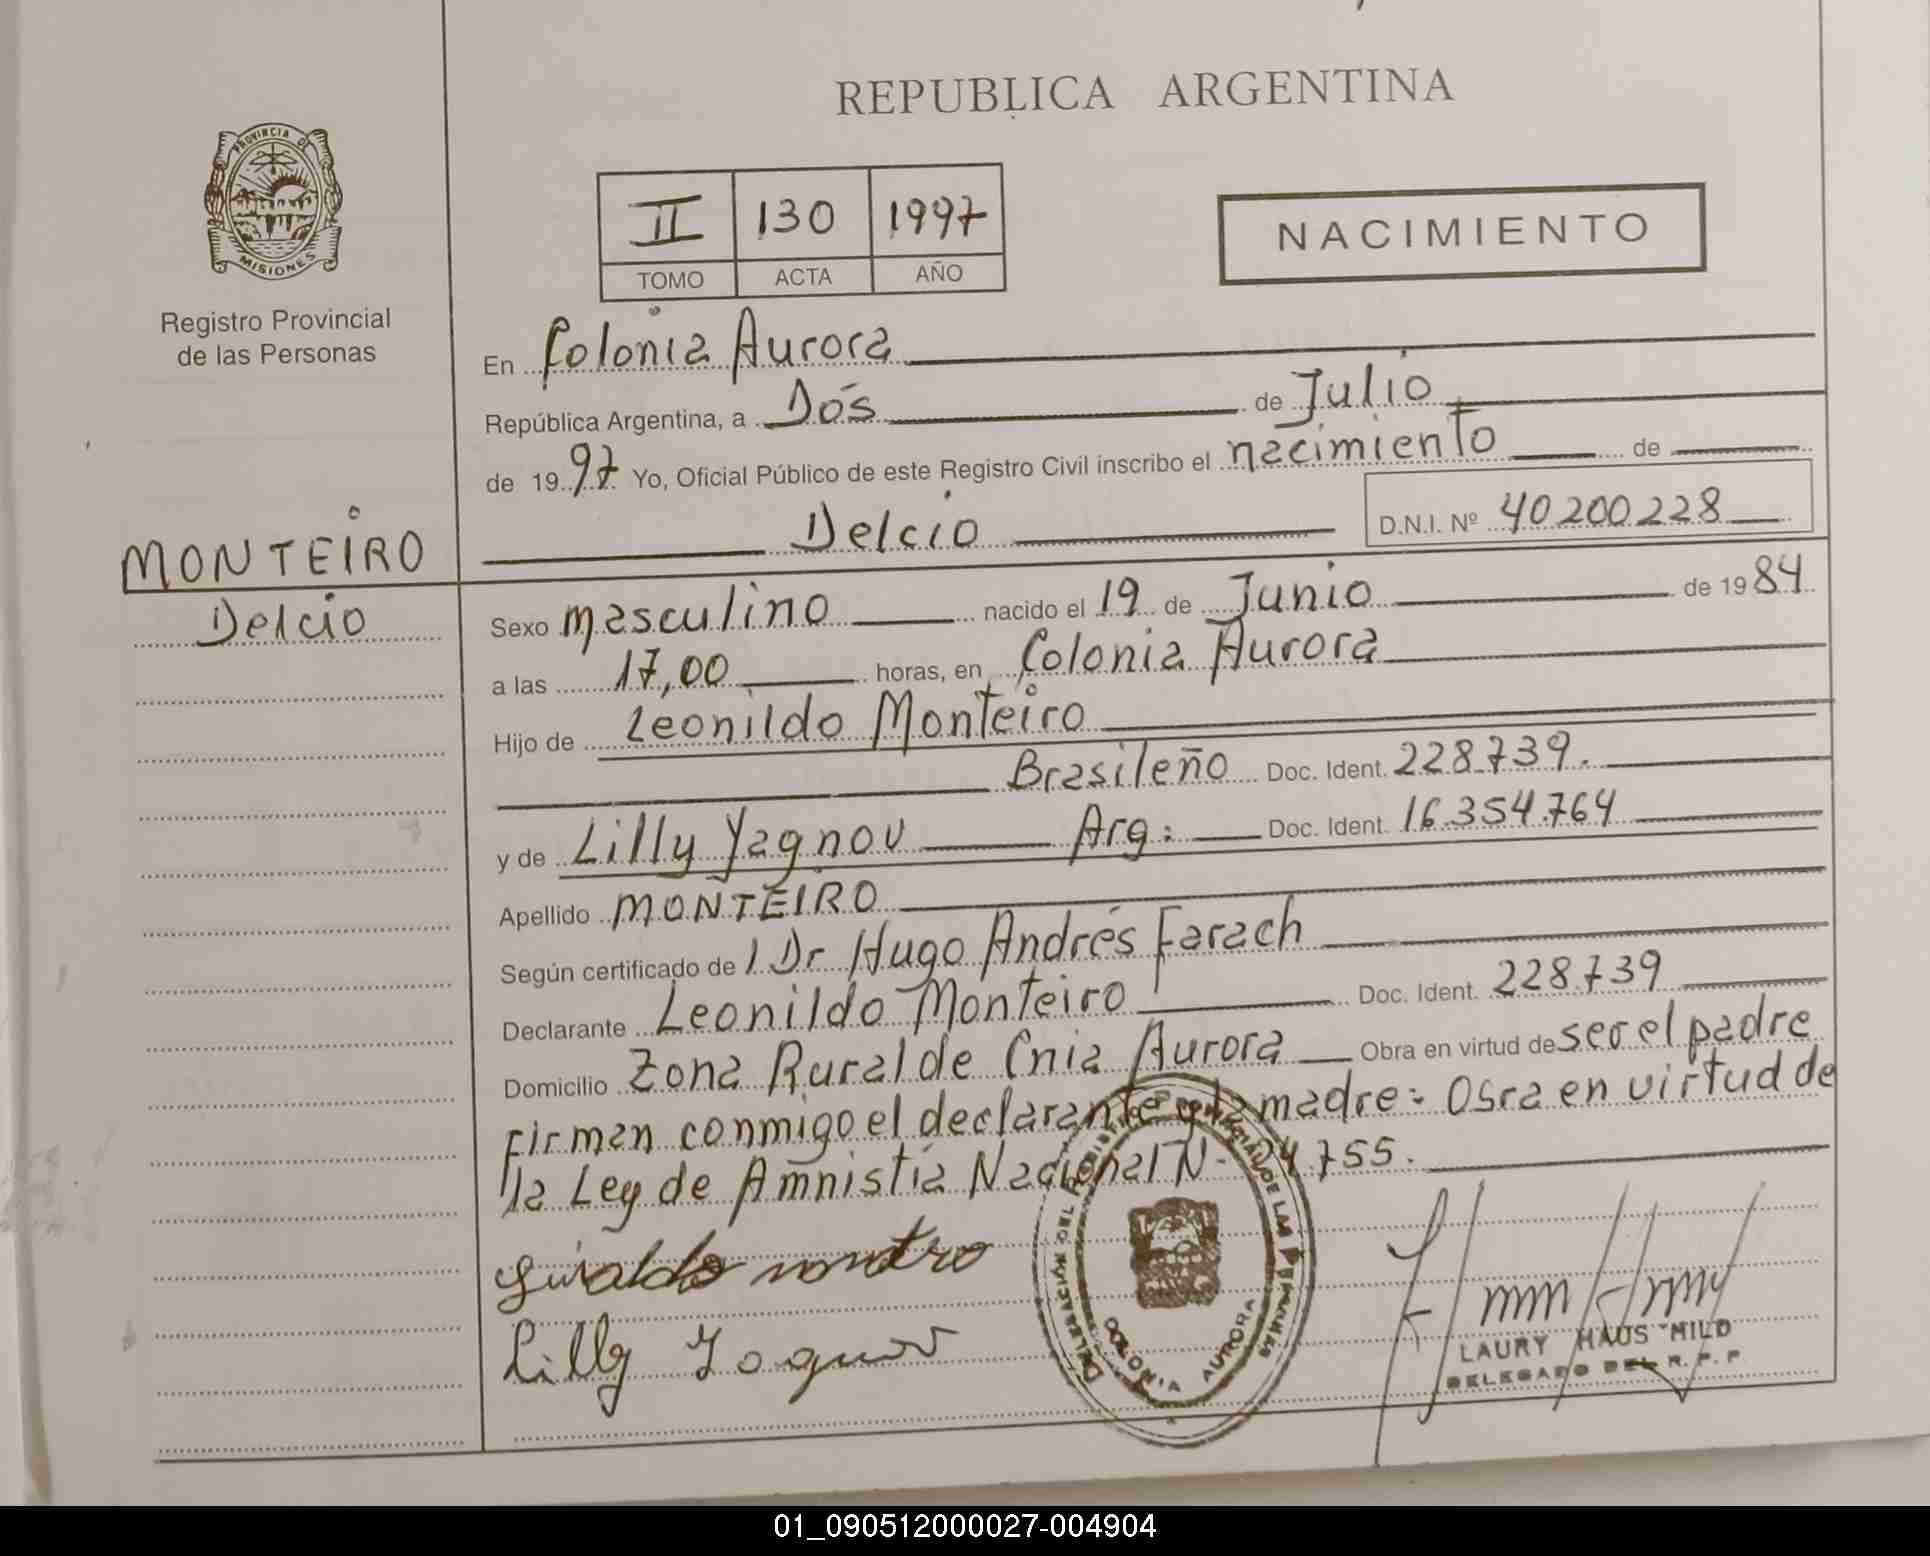 REPUBLICA ARGENTINA
PROVINCIA DE
MISIONES
Registro Provincial
de las Personas
II 130 1997
TOMO ACTA AÑO
NACIMIENTO
En Colonia Aurora
República Argentina, a Dos de Julio
de 1997 Yo, Oficial Público de este Registro Civil inscribo el nacimiento de
Delcio D.N.I. Nº 40200228
MONTEIRO
Delcio
Sexo masculino nacido el 19 de Junio de 1984
a las 17,00 horas, en Colonia Aurora
Hijo de Leonildo Monteiro
Brasileño Doc. Ident. 228.739.
y de Lilly Yagnov Arg: Doc. Ident. 16.354.764
Apellido MONTEIRO
Según certificado de l Dr Hugo Andrés Farach
Declarante Leonildo Monteiro Doc. Ident. 228739
Domicilio Zona Rural de Cnia Aurora Obra en virtud de ser el padre
Firman conmigo el declarante y la madre: Obra en virtud de
la Ley de Amnistía Nacional N- 24.755.
Lilly
DELEGACIÓN DEL REGISTRO PROVINCIAL DE LAS PERSONAS
COLONIA AURORA
LAURY HAUS MILD
DELEGADO DEL R. P. P
01_090512000027-004904